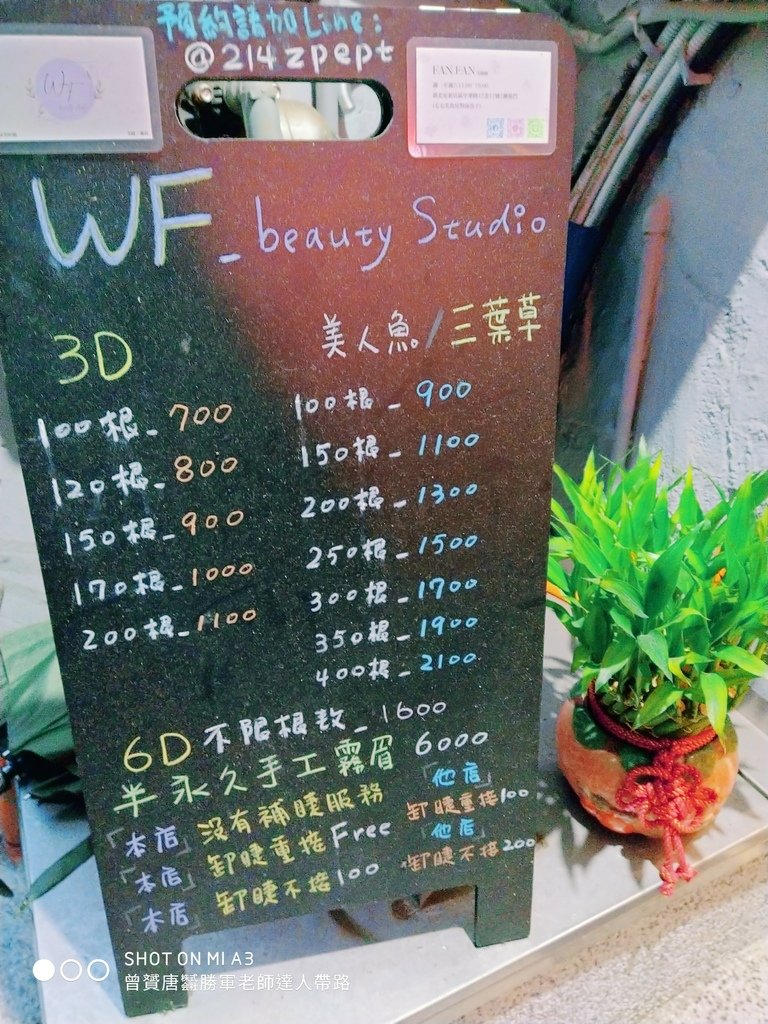 預約請加Line:
@214zpept
WF
FANFAN
WF_beauty Studio
3D
100根_700
120根_800
150根_900
170根_1000
200根_1100
美人魚/三葉草
100根_900
150根_1100
200根_1300
250根_1500
300根_1700
350根_1900
400根_2100
6D 不限根数_1600
半永久手工霧眉 6000
「本店」沒有補睫服務
「本店」卸睫重接Free 「他店」卸睫重接100
「本店」卸睫不接100 「他店」卸睫不接200
SHOT ON MI A3
曾贇唐鬱勝軍老師達人帶路